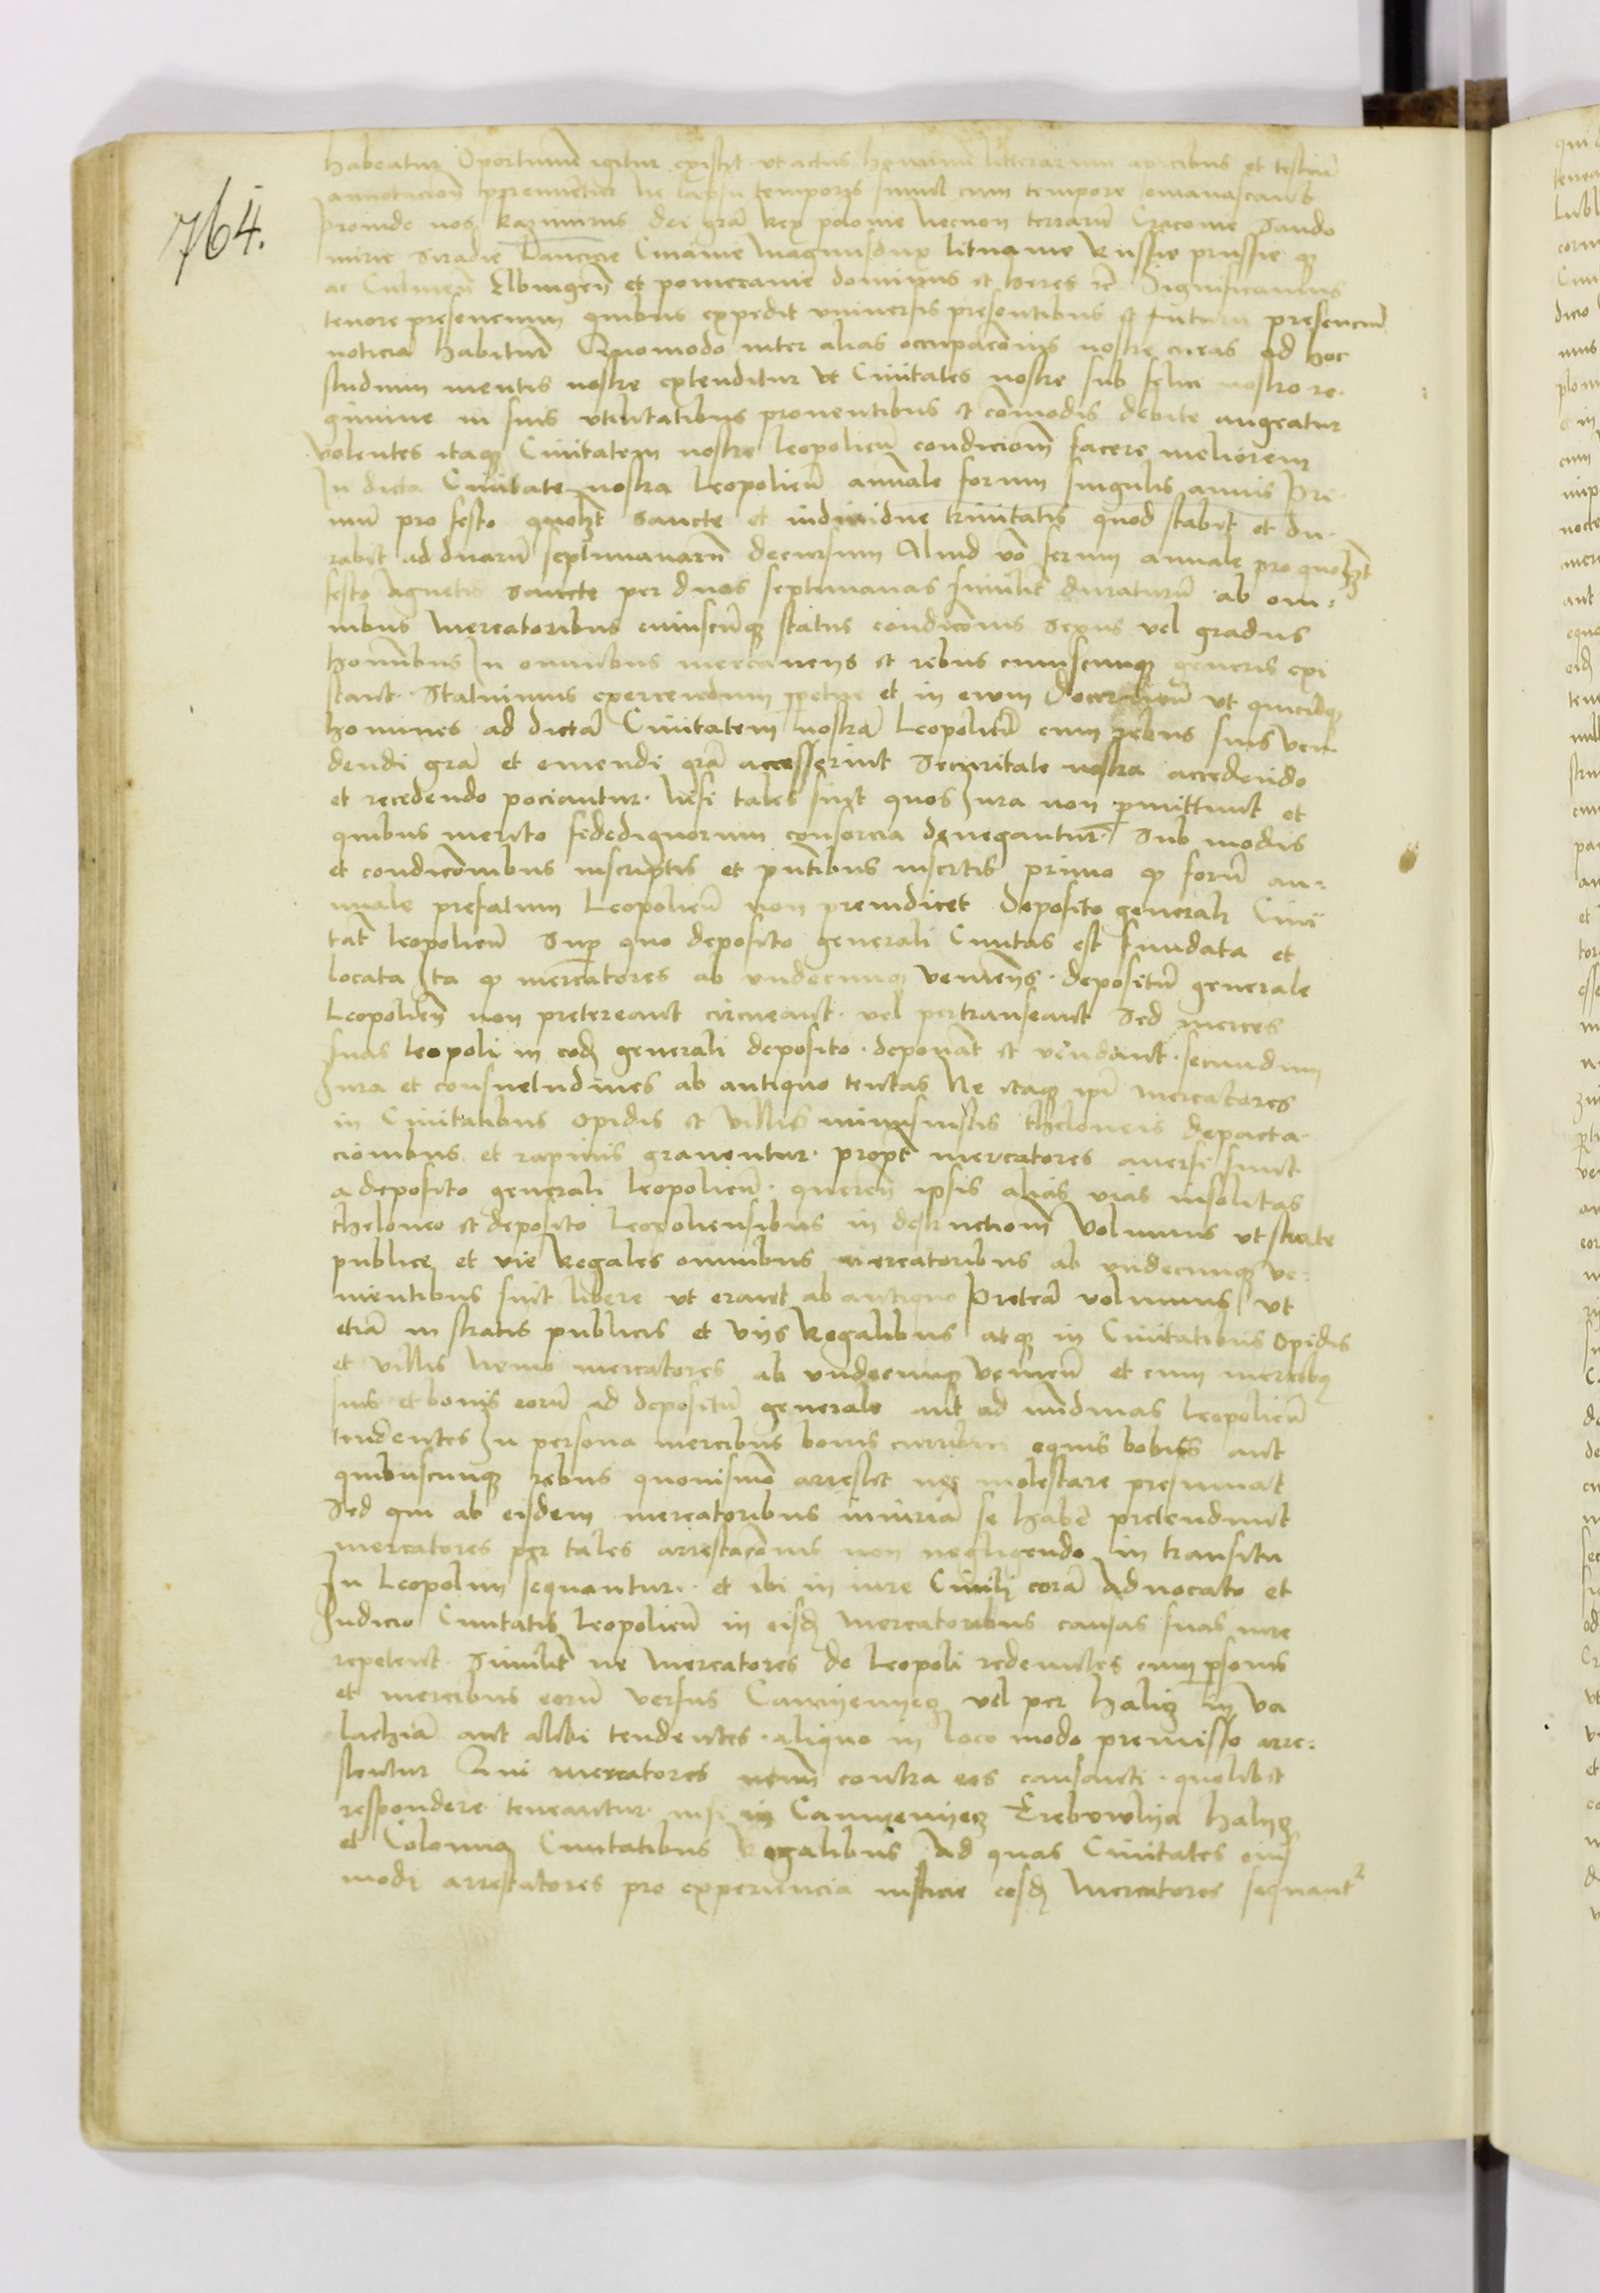 764.
habeatur Oportunum igitur existit ut actus hominum litterarum apicibus et testium
annotacione perennentur ne lapsu temporis simul cum tempore evanascant
proinde nos Kazimirus dei gra Rex polonie necnon terrarum Cracovie Sando
mirie Siradie Lancicie Cuiavie Magnusdux litwanie Russie prussie q
ac Culmen Elbingen et pomeranie dominus et heres etc Significamus
tenore presencium quibus expedit universis presentibus et futuris presencium
noticia habitur Quomodo inter alias occupacionis nostre curas ad hoc
studium mentis nostre extenditur ut Civitates nostre sub felici nostro re-
gimine in suis utilitatibus proventibus et comodis debite augeatur
volentes itaq Civitatem nostre leopolien condicionem facere meliorem
In dicta Civitate nostra leopolien annale forum singulis annis Pri-
mu pro festo quolzt Sancte et individue trinitatis quod stabit et du-
rabit ad duaru septimanaru decursum Aliud vo forum annale pro quolzt
festo Agnetis Sancte per duas septimanas similit duraturu ab om-
nibus Mercatoribus cuiuscunq status condicionis sexus vel gradus
hominibus In omnibus mercanciis et rebus cuiuscunq generis exi
stant Statuimus exercendum et in evum Ut quicunq
homines ad dicta Civitatem nostra Leopolien cum rebus suis ven
dendi gra et emendi gra accesserint Securitate nostra accedendo
et recedendo pociantur Nisi tales sint quos Jura non pmittunt et
quibus merito fidedignorum consorcia denegantur Sub modis
et condicionibus inscriptis et pntibus insertis primo q foru an-
nuale prefatum Leopolien non preiudicet Deposito generali Civi
tat leopolien Sup quo deposito generali Civitas est fundata et
locata Ita q mercatores ab undecunq venientes depositu generale
Leopolien non pretereant circueant vel pertranseant Sed merces
suas leopoli in eod generali deposito deponant et vendant secundum
Jura et consuetudines ab antiquo tentas Ne itaq ipi mercatores
in Civitatibus Opidis et villis iniustis theloneis depacta
cionibus et rapinis graventur propt mercatores aversi sunt
a deposito generali leopolien queren ipsis alias vias insolitas
theloneo et deposito Leopoliensibus in destructionem Volumus ut strate
publice et vie Regales omnibus mercatoribus ab undecunq ve-
nientibus sint libere ut erant ab antiquo Pretea volumus ut
etia in stratis publicis et viis Regalibus atq in Civitatibus Opidis
et villis Nemo mercatores ab undecunq venien et cum mercibq
suis et bonis eoru ad depositu generale aut ad nundinas leopolien
tendentes In persona mercibus bonis curribus equis bobus aut
quibuscunq rebus quovismo arrestet neq molestare presumat
Sed qui ab eisdem mercatoribus iniuria se habe pretendunt
mercatores per tales arrestacionis non negligendo in transitu
In Leopolim sequantur et ibi in iure Civili cora Advocato et
Judicio Civitatis leopolien in eisd Mercatoribus causas suas iure
repetent Similit ne Mercatores de leopoli redeuntes cum psonis
et mercibus eoru versus Camyenyecz vel per halicz in va
lachia aut alibi tendentes aliquo in loco modo premisso arre-
stentur Qui mercatores contra eos causanti quolibet
respondere teneantur nisi in Camyenyecz Trebowlya halycz
et Colomya Civitatibus Regalibus Ad quas Civitates eius
modi arrestatores pro experiencia iusticie eosd Mercatores sequant